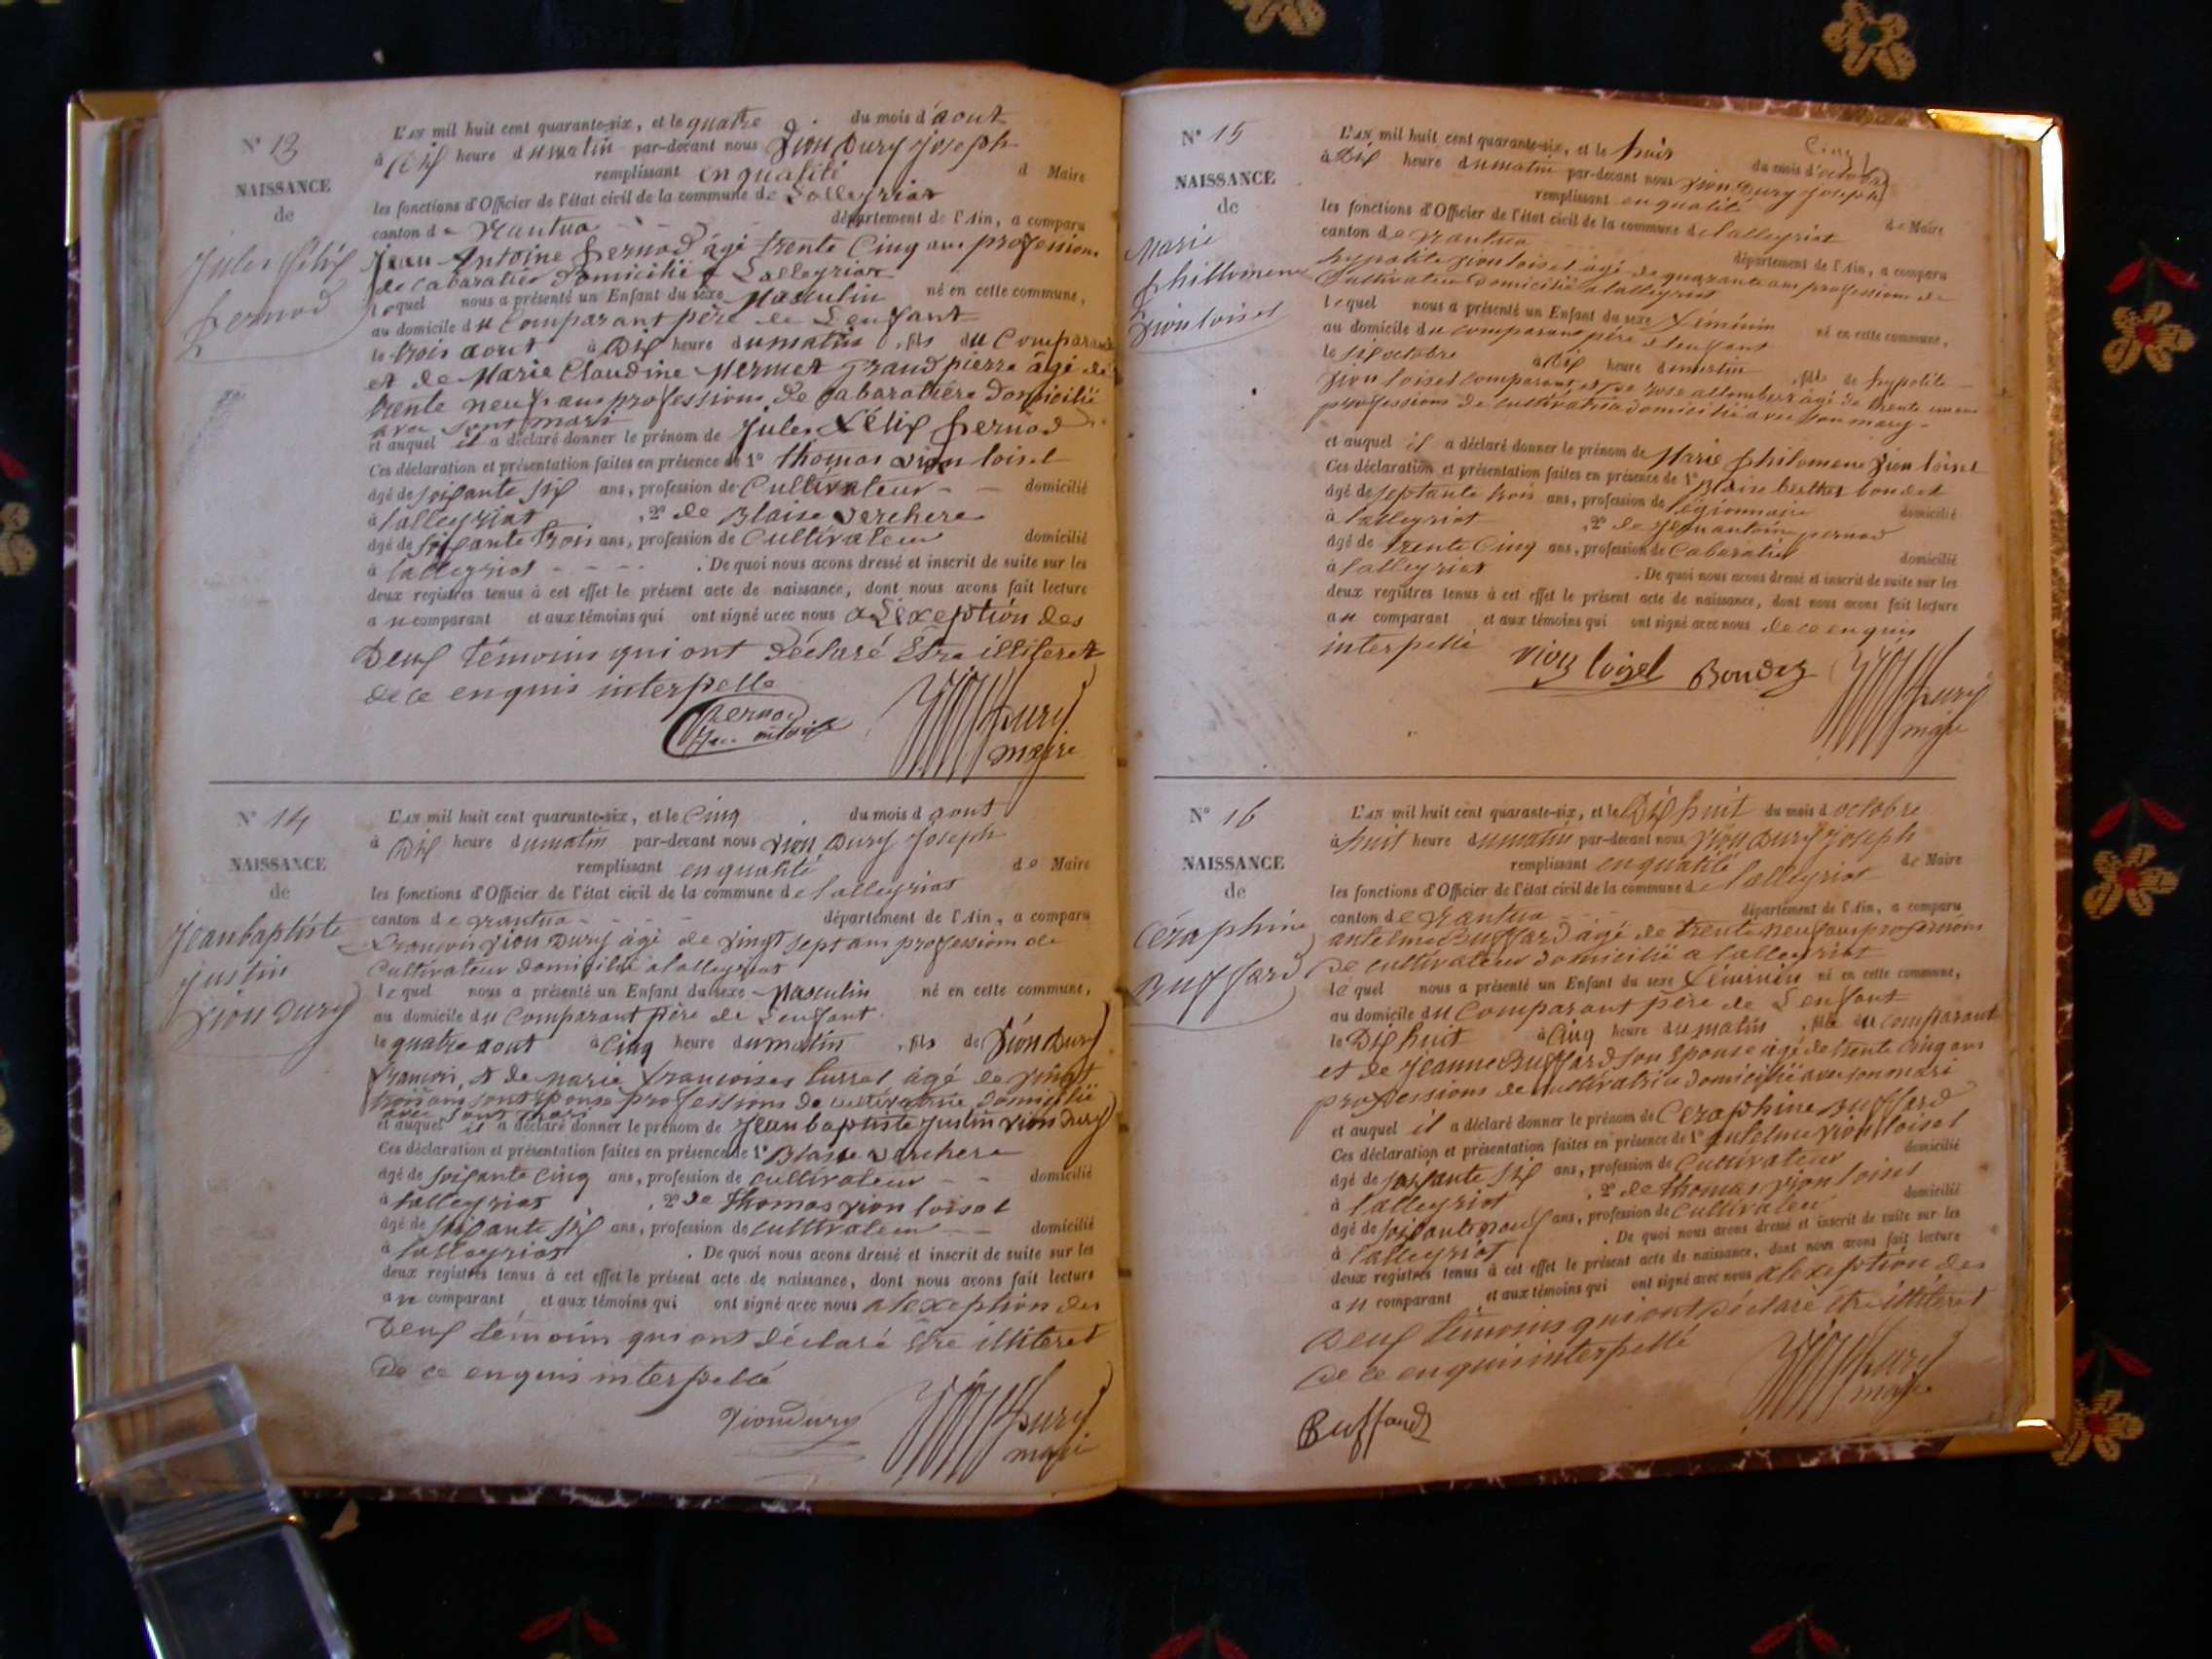 N° 13
NAISSANCE
de
Jules félix
pernod
L'AN mil huit cent quarante-six, et le quatre du mois d'aout
à Dix heure dumatin par-devant nous Vion Dury joseph
remplissant en qualité d Maire
les fonctions d'Officier de l'état civil de la commune de Lalleyriat
canton de Nantua département de l'Ain, a comparu
jean Antoine pernod âgé trente Cinq ans profession
de Cabaratier Domicilié a Lalleyriat
lequel nous a présenté un Enfant du sexe Masculin né en cette commune,
au domicile du Comparant père de L'enfant
le trois aout à Dix heure dumatin , fils du Comparant
et de Marie Claudine Mermet grandpierre âgé de
trente neuf ans professions de Cabaratière Domicilié
avec sont mari
et auquel il a déclaré donner le prénom de Jules Félix pernod
Ces déclaration et présentation faites en présence de 1° thomas vion loisel
âgé de soixante six ans, profession de Cultivateur domicilié
à lalleyriat , 2° de Blaise verchere
âgé de soixante trois ans, profession de Cultivateur domicilié
à lalleyriat . De quoi nous avons dressé et inscrit de suite sur les
deux registres tenus à cet effet le présent acte de naissance, dont nous avons fait lecture
au comparant et aux témoins qui ont signé avec nous a L'exeption des
Deux témoins qui ont Déclaré Être illiteret
de ce enquis interpellé
pernod
jean antoine
Dury
maire
N° 14
NAISSANCE
de
Jean baptiste
justin
vion Dury
L'AN mil huit cent quarante-six, et le Cinq du mois d aout
à Dix heure dumatin par-devant nous vion Dury joseph
remplissant en qualité de Maire
les fonctions d'Officier de l'état civil de la commune de lalleyriat
canton de nantua département de l'Ain, a comparu
francois vion Dury âgé de vingt sept ans profession de
Cultivateur domicilié a lalleyriat
lequel nous a présenté un Enfant du sexe Masculin né en cette commune,
au domicile du Comparant père de L'enfant
le quatre aout à Cinq heure dumatin , fils de Vion Dury
francois, et de marie francoises turrel âgé de vingt
trois ans sont Eponse professions de cultivatrie domicilié
avec sont mari
et auquel il a déclaré donner le prénom de Jean baptiste justin vion Dury
Ces déclaration et présentation faites en présence de 1° Blaise verchere
âgé de soixante Cinq ans, profession de cultivateur domicilié
à lalleyriat , 2° de thomas vion loisel
âgé de soixante six ans, profession de cultivateur domicilié
à lalleyriat . De quoi nous avons dressé et inscrit de suite sur les
deux registres tenus à cet effet le présent acte de naissance, dont nous avons fait lecture
au comparant et aux témoins qui ont signé avec nous a lexeption des
Deux témoins qui ont Déclaré Être illiteret
De ce enquis interpellé
Viondury
Dury
maire
N° 15
NAISSANCE
de
Marie
phillomene
vion loisel
Cinq
L'AN mil huit cent quarante-six, et le huit du mois d'octobre
à Dix heure dumatin par-devant nous vion Dury joseph
remplissant en qualité de Maire
les fonctions d'Officier de l'état civil de la commune de lalleyriat
canton de nantua département de l'Ain, a comparu
hypolite vion loisel âgé de quarante ans professions de
Cultivateur domicilié a lalleyriat
lequel nous a présenté un Enfant du sexe Féminin né en cette commune,
au domicile du comparant père de lenfant
le six octobre à Dix heure dumatin , fille de hypolite
vion loisel comparant et de rose allombert âgé de trente
professions de cultivatrice domicilié avec son mary
et auquel il a déclaré donner le prénom de Marie philomene vion loisel
Ces déclaration et présentation faites en présence de 1° Blaise berthet boudet
âgé de septante trois ans, profession de légionnaire domicilié
à lalleyriat , 2° de jean antoine pernod
âgé de trente Cinq ans, profession de Cabaratier domicilié
à lalleyriat . De quoi nous avons dressé et inscrit de suite sur les
deux registres tenus à cet effet le présent acte de naissance, dont nous avons fait lecture
au comparant et aux témoins qui ont signé avec nous de ce enquis
interpellé
vion loisel Boudez
Dury
maire
N° 16
NAISSANCE
de
Ceraphine
Buffard
L'AN mil huit cent quarante-six, et le Dix huit du mois d octobre
à huit heure dumatin par-devant nous vion Dury joseph
remplissant en qualité de Maire
les fonctions d'Officier de l'état civil de la commune de lalleyriat
canton de Nantua département de l'Ain, a comparu
antelme Buffard âgé de trente neuf ans professions
De cultivateur domicilié a lalleyriat
lequel nous a présenté un Enfant du sexe Féminin né en cette commune,
au domicile du Comparant père de L'enfant
le Dix huit à Cinq heure du matin , fille du comparant
et de jeanne Buffard son Epouse âgé de trente Cinq ans
professions de cultivatrice domicilié avec son mari
et auquel il a déclaré donner le prénom de Ceraphine Buffard
Ces déclaration et présentation faites en présence de 1° antelme vion loisel
âgé de soixante six ans, profession de Cultivateur domicilié
à lalleyriat , 2° de thomas vion loisel
âgé de soixante neuf ans, profession de Cultivateur domicilié
à lalleyriat . De quoi nous avons dressé et inscrit de suite sur les
deux registres tenus à cet effet le présent acte de naissance, dont nous avons fait lecture
au comparant et aux témoins qui ont signé avec nous a lexeption des
Deux témoins qui ont Déclaré être illiteret
De ce enquis interpellé
Dury
maire
Buffard